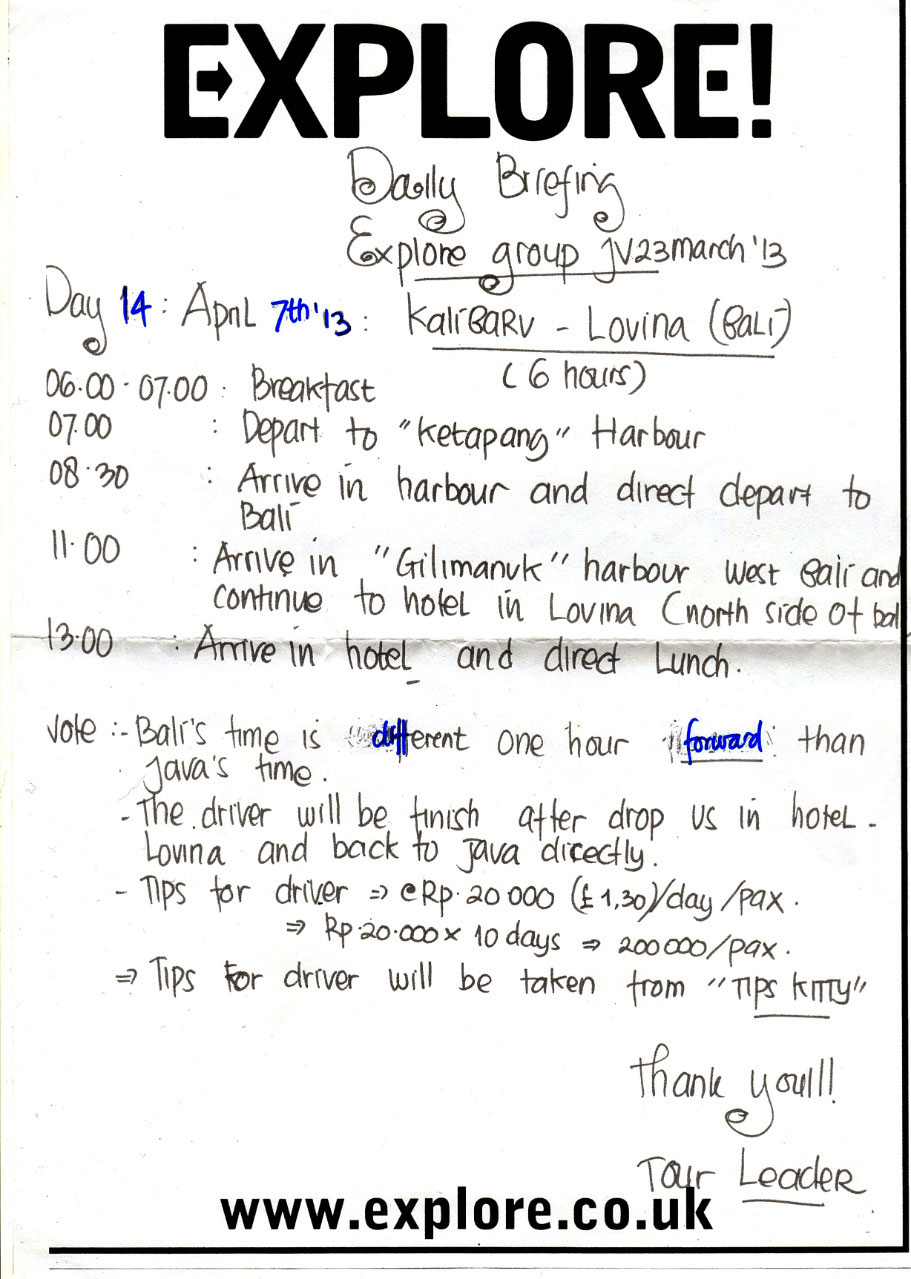 EXPLORE!
Daily Briefing
Explore group JV23march'13
Day 14 : April 7th '13 : KaliBARU - Lovina (BALI)
(6 hours)
06.00 - 07.00 : Breakfast
07.00 : Depart to "Ketapang" Harbour
08.30 : Arrive in harbour and direct depart to
Bali
11.00 : Arrive in "Gilimanuk" harbour west Bali and
continue to hotel in Lovina (north side of bal
13.00 : Arrive in hotel and direct Lunch.
Note :- Bali's time is different one hour forward than
Java's time.
- The driver will be finish after drop us in hotel -
Lovina and back to Java directly.
- Tips for driver => @Rp.20 000 (£ 1,30)/day /pax.
=> Rp.20.000 x 10 days => 200 000/pax.
=> Tips for driver will be taken from "TIPS KITTY"
Thank you!!!
Tour Leader
www.explore.co.uk